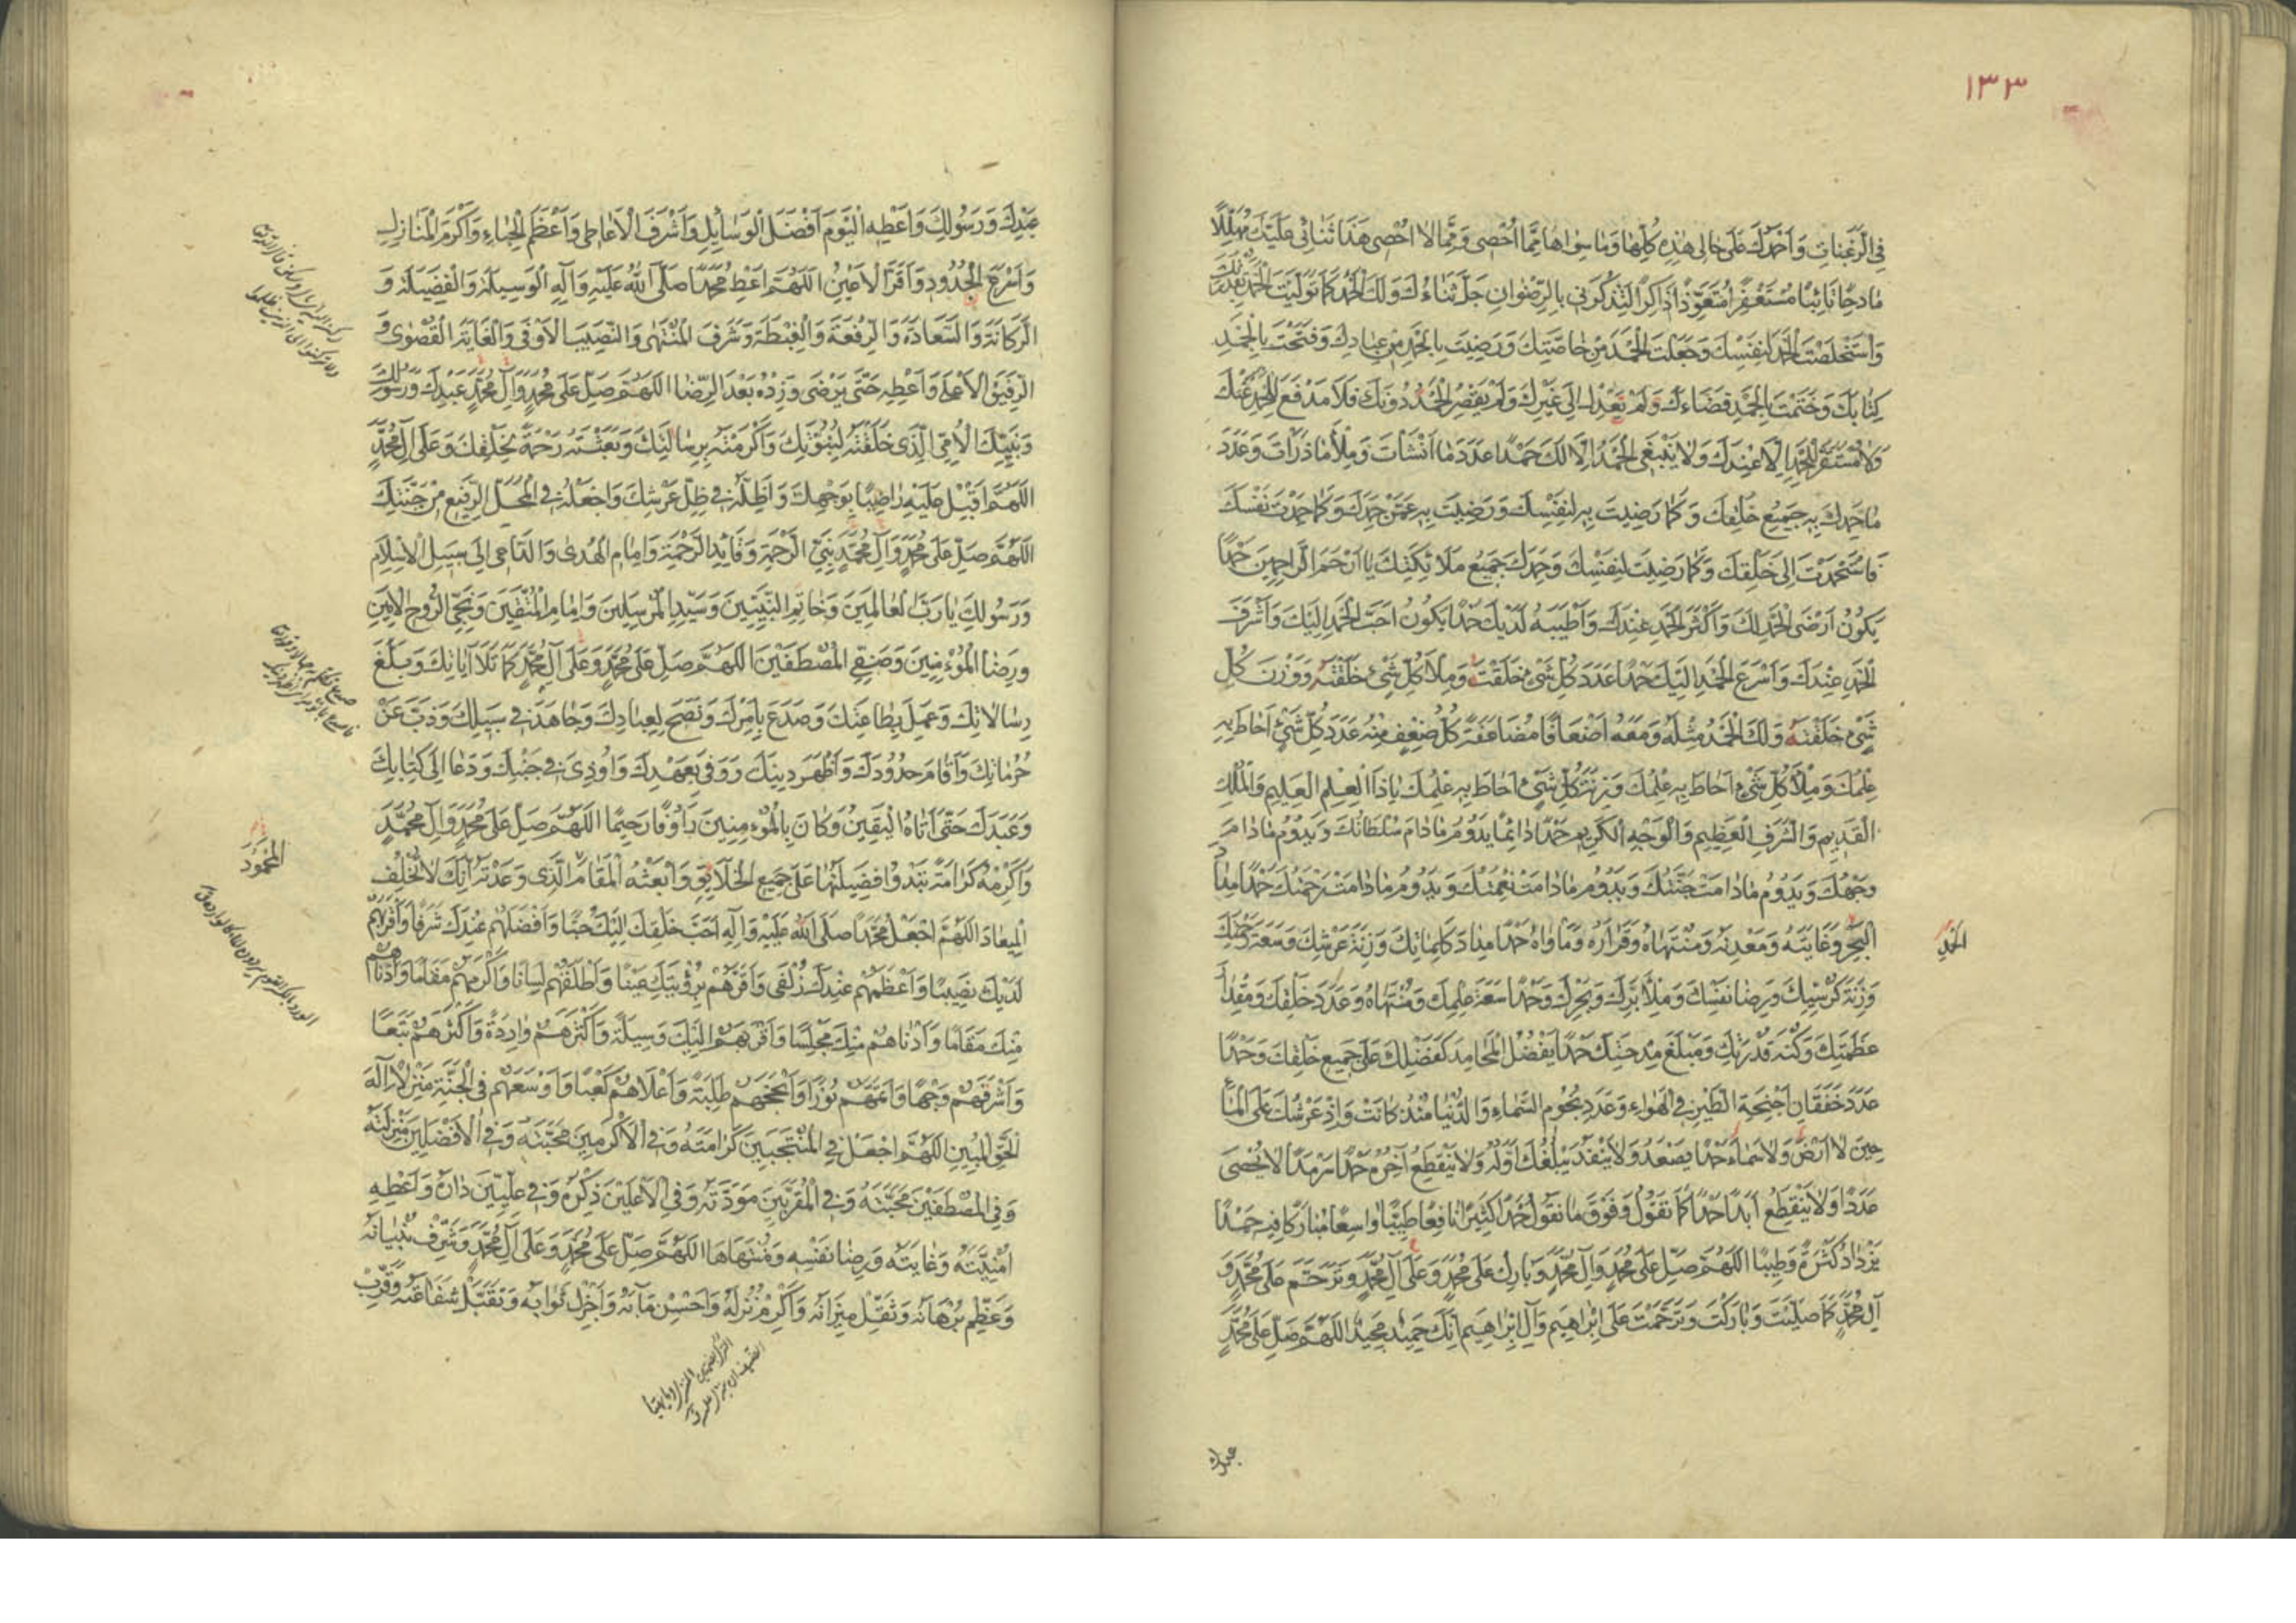 ١٣٣
فِي الرَّغَبَاتِ وَأَحْمَدُكَ عَلَى حَالِي هٰذِهِ كُلِّهَا وَمَا سِوَاهَا مِمَّا أُحْصِي وَمِمَّا لَا أُحْصِي هَذَا ثَنَائِي عَلَيْكَ مُهَلِّلًا
مَادِحًا تَائِبًا مُسْتَغْفِرًا مُتَعَوِّذًا ذَاكِرًا لِتَذْكُرَنِي بِالرِّضْوَانِ جَلَّ ثَنَاءُكَ وَلَكَ الْحَمْدُ كَمَا تَوَلَّيْتَ الْحَمْدَ بِقُدْرَتِكَ
وَاسْتَخْلَصْتَ الْحَمْدَ لِنَفْسِكَ وَجَعَلْتَ الْحَمْدَ مِنْ خَاصَّتِكَ وَرَضِيتَ بِالْحَمْدِ مِنْ عِبَادِكَ وَفَتَحْتَ بِالْحَمْدِ
كِتَابَكَ وَخَتَمْتَ بِالْحَمْدِ قَضَاءَكَ وَلَمْ يَعْدِلْ إِلَى غَيْرِكَ وَلَمْ يَقْصُرِ الْحَمْدُ دُونَكَ فَلَا مَدْفَعَ لِلْحَمْدِ عَنْكَ
وَلَا مُسْتَقَرَّ لِلْحَمْدِ إِلَّا عِنْدَكَ وَلَا يَنْبَغِي الْحَمْدُ إِلَّا لَكَ حَمْدًا عَدَدَ مَا أَنْشَأْتَ وَمِلْأَ مَا ذَرَأْتَ وَعَدَدَ
مَا حَمِدَكَ بِهِ جَمِيعُ خَلْقِكَ وَكَمَا رَضِيتَ بِهِ لِنَفْسِكَ وَرَضِيتَ بِهِ عَمَّنْ حَمِدَكَ وَكَمَا حَمِدْتَ نَفْسَكَ
فَاسْتَحْمَدْتَ إِلَى خَلْقِكَ وَكَمَا رَضِيتَ لِنَفْسِكَ وَحَمِدَكَ جَمِيعُ مَلَائِكَتِكَ يَا أَرْحَمَ الرَّاحِمِينَ حَمْدًا
يَكُونُ أَرْضَى الْحَمْدِ لَكَ وَأَكْثَرَ الْحَمْدِ عِنْدَكَ وَأَطْيَبَهُ لَدَيْكَ حَمْدًا يَكُونُ أَحَبَّ الْحَمْدِ إِلَيْكَ وَأَشْرَفَ
الْحَمْدِ عِنْدَكَ وَأَسْرَعَ الْحَمْدِ إِلَيْكَ حَمْدًا عَدَدَ كُلِّ شَيْءٍ خَلَقْتَهُ وَمِلْأَ كُلِّ شَيْءٍ خَلَقْتَهُ وَوَزْنَ كُلِّ
شَيْءٍ خَلَقْتَهُ وَلَكَ الْحَمْدُ مِثْلَهُ وَمَعَهُ أَضْعَافًا مُضَاعَفَةً كُلُّ ضِعْفٍ مِنْهُ عَدَدَ كُلِّ شَيْءٍ أَحَاطَ بِهِ
عِلْمُكَ وَمِلْأَ كُلِّ شَيْءٍ أَحَاطَ بِهِ عِلْمُكَ وَزِنَةَ كُلِّ شَيْءٍ أَحَاطَ بِهِ عِلْمُكَ يَا ذَا الْعِلْمِ الْعَلِيمِ وَالْمُلْكِ
الْقَدِيمِ وَالشَّرَفِ الْعَظِيمِ وَالْوَجْهِ الْكَرِيمِ حَمْدًا دَائِمًا يَدُومُ مَا دَامَ سُلْطَانُكَ وَيَدُومُ مَا دَامَ
وَجْهُكَ وَيَدُومُ مَا دَامَتْ جَنَّتُكَ وَيَدُومُ مَا دَامَتْ نِعْمَتُكَ وَيَدُومُ مَا دَامَتْ رَحْمَتُكَ حَمْدًا مِدَادَ
الْحَمْدِ
الْبَحْرِ وَغَايَتَهُ وَمَعْدِنَهُ وَمُنْتَهَاهُ وَقَرَارَهُ وَمَأْوَاهُ حَمْدًا مِدَادَ كَلِمَاتِكَ وَزِنَةَ عَرْشِكَ وَسَعَةَ رَحْمَتِكَ
وَزِنَةَ كُرْسِيِّكَ وَرِضَا نَفْسِكَ وَمِلْأَ بَرِّكَ وَبَحْرِكَ وَحَمْدًا سَعَةَ عِلْمِكَ وَمُنْتَهَاهُ وَعَدَدَ خَلْقِكَ وَمِقْدَارَ
عَظَمَتِكَ وَكُنْهَ قُدْرَتِكَ وَمَبْلَغَ مِدْحَتِكَ حَمْدًا يَفْضُلُ الْمَحَامِدَ كَفَضْلِكَ عَلَى جَمِيعِ خَلْقِكَ وَحَمْدًا
عَدَدَ خَفَقَانِ أَجْنِحَةِ الطَّيْرِ فِي الْهَوَاءِ وَعَدَدَ نُجُومِ السَّمَاءِ وَالدُّنْيَا مُنْذُ كَانَتْ وَإِذْ عَرْشُكَ عَلَى الْمَاءِ
حِينَ لَا أَرْضَ وَلَا سَمَاءَ حَمْدًا يَصْعَدُ وَلَا يَنْفَدُ يَبْلُغُكَ أَوَّلُهُ وَلَا يَنْقَطِعُ آخِرُهُ حَمْدًا سَرْمَدًا لَا يُحْصَى
عَدَدًا وَلَا يَنْقَطِعُ أَبَدًا حَمْدًا كَمَا تَقُولُ وَفَوْقَ مَا نَقُولُ حَمْدًا كَثِيرًا نَافِعًا طَيِّبًا وَاسِعًا مُبَارَكًا فِيهِ حَمْدًا
يَزْدَادُ كَثْرَةً وَطِيبًا اللَّهُمَّ صَلِّ عَلَى مُحَمَّدٍ وَآلِ مُحَمَّدٍ وَبَارِكْ عَلَى مُحَمَّدٍ وَعَلَى آلِ مُحَمَّدٍ وَتَرَحَّمْ عَلَى مُحَمَّدٍ وَ
آلِ مُحَمَّدٍ كَمَا صَلَّيْتَ وَبَارَكْتَ وَتَرَحَّمْتَ عَلَى إِبْرَاهِيمَ وَآلِ إِبْرَاهِيمَ إِنَّكَ حَمِيدٌ مَجِيدٌ اللَّهُمَّ صَلِّ عَلَى مُحَمَّدٍ
عبدك
عَبْدِكَ وَرَسُولِكَ وَأَعْطِهِ الْيَوْمَ أَفْضَلَ الْوَسَائِلِ وَأَشْرَفَ الْأَعَاطِي وَأَعْظَمَ الْحِبَاءِ وَأَكْرَمَ الْمَنَازِلِ
وَأَسْرَعَ الْجُدُودِ وَأَقَرَّ الْأَعْيُنِ اللَّهُمَّ أَعْطِ مُحَمَّدًا صَلَّى اللهُ عَلَيْهِ وَآلِهِ الْوَسِيلَةَ وَالْفَضِيلَةَ وَ
الرَّكَانَةَ وَالسَّعَادَةَ وَالرِّفْعَةَ وَالْغِبْطَةَ وَشَرَفَ الْمُنْتَهَى وَالنَّصِيبَ الْأَوْفَى وَالْغَايَةَ الْقُصْوَى وَ
الرَّفِيقَ الْأَعْلَى وَأَعْطِهِ حَتَّى يَرْضَى وَزِدْهُ بَعْدَ الرِّضَا اللَّهُمَّ صَلِّ عَلَى مُحَمَّدٍ وَآلِ مُحَمَّدٍ عَبْدِكَ وَرَسُولِكَ
وَنَبِيِّكَ الْأُمِّيِّ الَّذِي خَلَقْتَهُ لِنُبُوَّتِكَ وَأَكْرَمْتَهُ بِرِسَالَتِكَ وَبَعَثْتَهُ رَحْمَةً لِخَلْقِكَ وَعَلَى آلِ مُحَمَّدٍ
اللَّهُمَّ أَقْبِلْ عَلَيْهِ رَاضِيًا بِوَجْهِكَ وَأَظِلَّهُ فِي ظِلِّ عَرْشِكَ وَاجْعَلْهُ فِي الْمَحَلِّ الرَّفِيعِ مِنْ جَنَّتِكَ
اللَّهُمَّ صَلِّ عَلَى مُحَمَّدٍ وَآلِ مُحَمَّدٍ نَبِيِّ الرَّحْمَةِ وَقَائِدِ الرَّحْمَةِ وَإِمَامِ الْهُدَى وَالدَّاعِي إِلَى سَبِيلِ الْإِسْلَامِ
وَرَسُولِكَ يَا رَبَّ الْعَالَمِينَ وَخَاتَمِ النَّبِيِّينَ وَسَيِّدِ الْمُرْسَلِينَ وَإِمَامِ الْمُتَّقِينَ وَنَجِيِّ الرُّوحِ الْأَمِينِ
وَرِضَا الْمُؤْمِنِينَ وَصَفِيِّ الْمُصْطَفَيْنَ اللَّهُمَّ صَلِّ عَلَى مُحَمَّدٍ وَعَلَى آلِ مُحَمَّدٍ كَمَا تَلَا آيَاتِكَ وَبَلَّغَ
رِسَالَاتِكَ وَعَمِلَ بِطَاعَتِكَ وَصَدَعَ بِأَمْرِكَ وَنَصَحَ لِعِبَادِكَ وَجَاهَدَ فِي سَبِيلِكَ وَذَبَّ عَنْ
حُرُمَاتِكَ وَأَقَامَ حُدُودَكَ وَأَظْهَرَ دِينَكَ وَوَفَى بِعَهْدِكَ وَأُوذِيَ فِي جَنْبِكَ وَدَعَا إِلَى كِتَابِكَ
وَعَبَدَكَ حَتَّى أَتَاهُ الْيَقِينُ وَكَانَ بِالْمُؤْمِنِينَ رَؤُفًا رَحِيمًا اللَّهُمَّ صَلِّ عَلَى مُحَمَّدٍ وَآلِ مُحَمَّدٍ
الْمَحْمُودَ
وَأَكْرِمْهُ كَرَامَةً تَبْدُو فَضِيلَتُهَا عَلَى جَمِيعِ الْخَلَائِقِ وَابْعَثْهُ الْمَقَامَ الَّذِي وَعَدْتَهُ إِنَّكَ لَا تُخْلِفُ
الْمِيعَادَ اللَّهُمَّ اجْعَلْ مُحَمَّدًا صَلَّى اللهُ عَلَيْهِ وَآلِهِ أَحَبَّ خَلْقِكَ إِلَيْكَ حُبًّا وَأَفْضَلَهُمْ عِنْدَكَ شَرَفًا وَأَوْفَرَهُمْ
لَدَيْكَ نَصِيبًا وَأَعْظَمَهُمْ عِنْدَكَ زُلْفَى وَأَقَرَّهُمْ بِرُؤْيَتِكَ عَيْنًا وَأَطْلَقَهُمْ لِسَانًا وَأَكْرَمَهُمْ مَقَامًا وَأَدْنَاهُمْ
مِنْكَ مَقَامًا وَأَدْنَاهُمْ مِنْكَ مَجْلِسًا وَأَقْرَبَهُمْ إِلَيْكَ وَسِيلَةً وَأَكْثَرَهُمْ وَارِدَةً وَأَكْثَرَهُمْ تَبَعًا
وَأَشْرَقَهُمْ وَجْهًا وَأَتَمَّهُمْ نُورًا وَأَنْجَحَهُمْ طَلِبَةً وَأَعْلَاهُمْ كَعْبًا وَأَوْسَعَهُمْ فِي الْجَنَّةِ مَنْزِلًا إِلٰهَ
الْحَقِّ الْمُبِينِ اللَّهُمَّ اجْعَلْ فِي الْمُنْتَجَبِينَ كَرَامَتَهُ وَفِي الْأَكْرَمِينَ مَحَبَّتَهُ وَفِي الْأَفْضَلِينَ مَنْزِلَتَهُ
وَفِي الْمُصْطَفَيْنَ مَحَبَّتَهُ وَفِي الْمُقَرَّبِينَ مَوَدَّتَهُ وَفِي الْأَعْلَيْنَ ذِكْرَهُ وَفِي عِلِّيِّينَ دَارَهُ وَأَعْطِهِ
أُمْنِيَّتَهُ وَغَايَتَهُ وَرِضَا نَفْسِهِ وَمُنْتَهَاهَا اللَّهُمَّ صَلِّ عَلَى مُحَمَّدٍ وَعَلَى آلِ مُحَمَّدٍ وَشَرِّفْ بُنْيَانَهُ
وَعَظِّمْ بُرْهَانَهُ وَثَقِّلْ مِيزَانَهُ وَأَكْرِمْ نُزُلَهُ وَأَحْسِنْ مَآبَهُ وَأَجْزِلْ ثَوَابَهُ وَتَقَبَّلْ شَفَاعَتَهُ وَقَرِّبْ